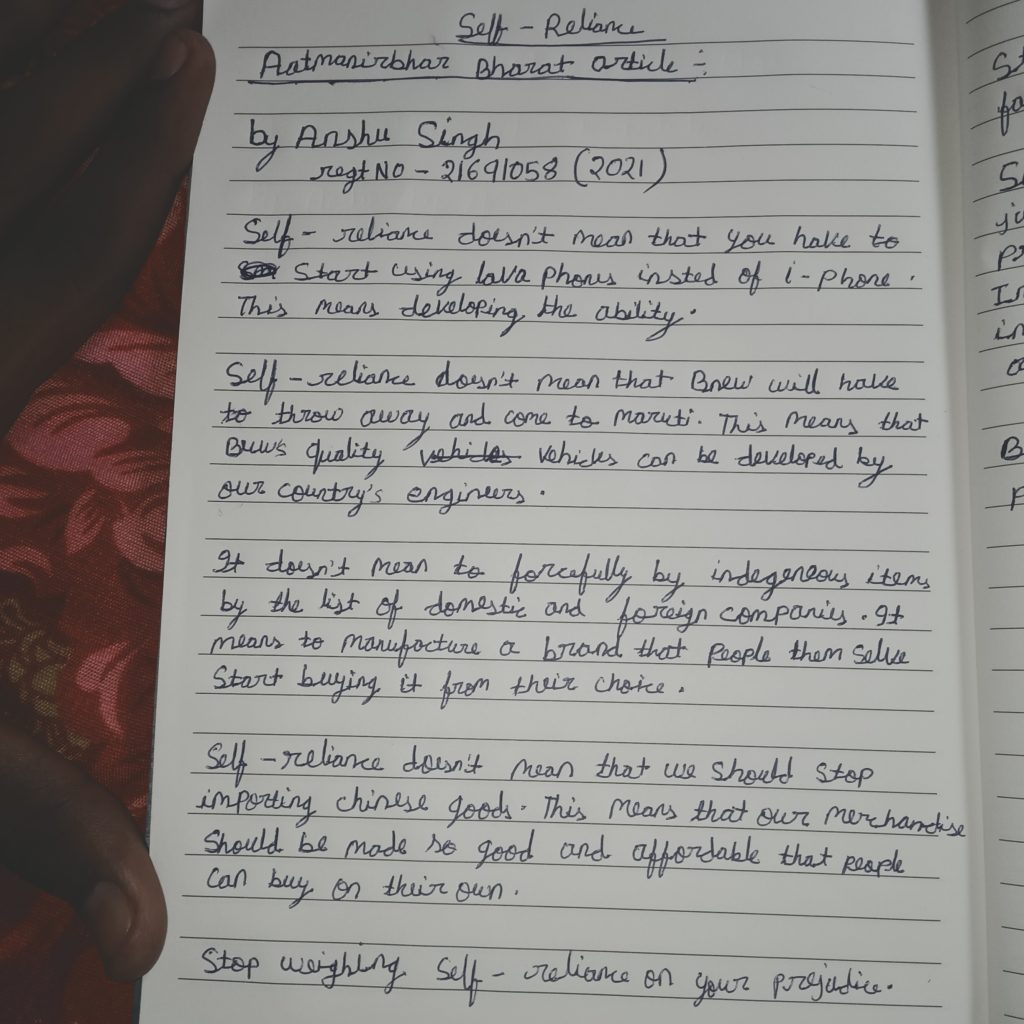 Self - Reliance
Aatmanirbhar Bharat article :-
by Anshu Singh
regt NO - 21691058 (2021)
Self - reliance doesn't mean that you hake to
Start using lava phones insted of i - phone .
This means developing the ability.
Self - reliance doesn't mean that Bnew will hake
to throw away and come to maruti. This means that
quality vehicles vehicles can be developed by
our country's engineers .
It doesn't mean to forcefully by indegeneous items
by the list of domestic and foreign companies . It
means to manufacture a brand that people them selve
Start buying it from their choice .
Self - reliance doesn't mean that we should stop
importing chinese goods. This means that our merchandise
should be made so good and affordable that people
can buy on their own .
Stop weighing Self - reliance on your prejudice.
St
fo
S
ju
pr
In
in
a
B
F